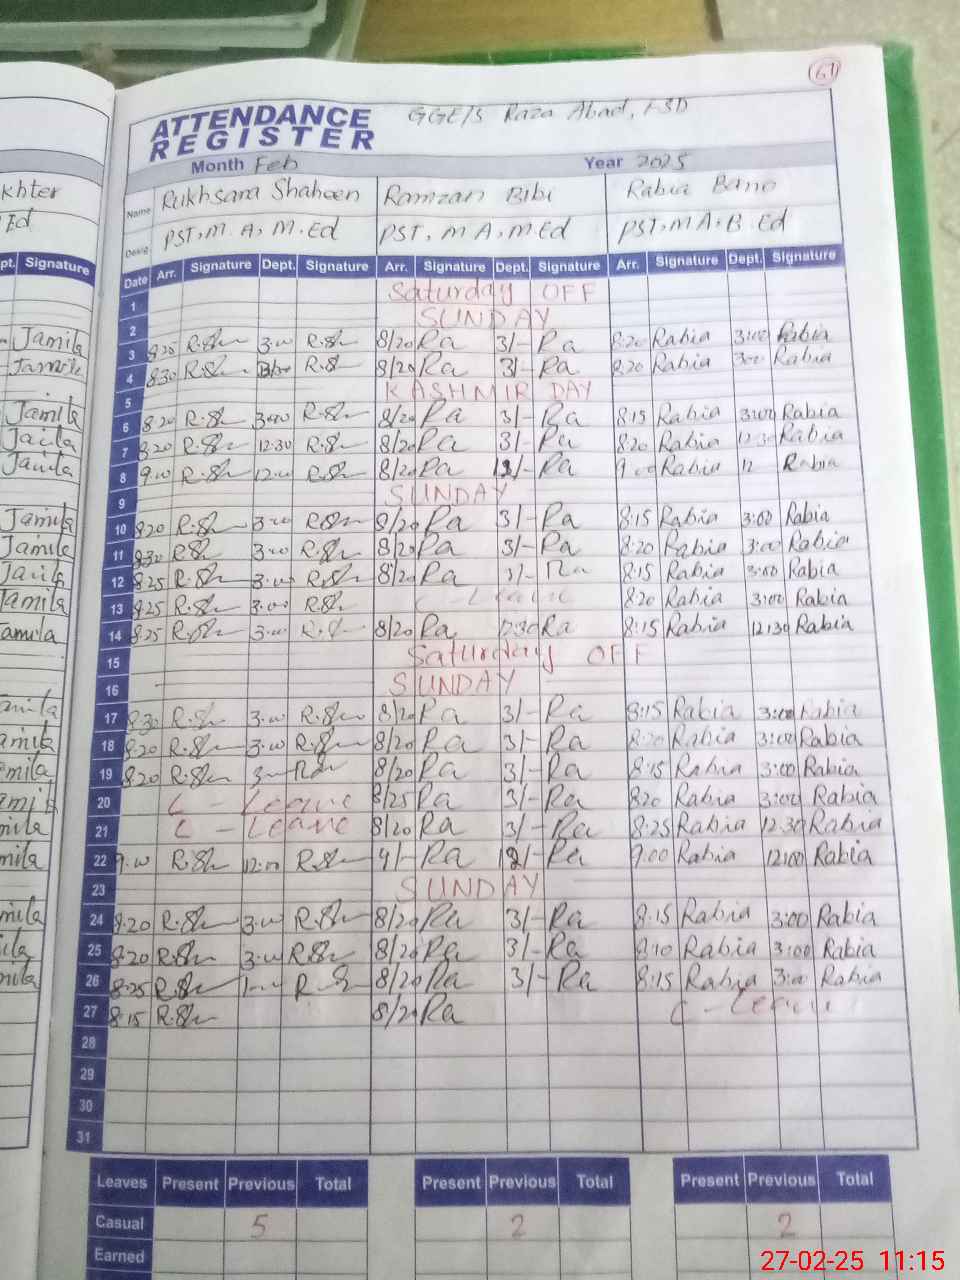 61
ATTENDANCE
REGISTER
GGE/S Raza Abad, FSD
Month Feb Year 2025
khter Name Rukhsana Shaheen Ramzan Bibi Rabia Bano
Ed Desig PST, M.A, M.Ed PST, M A, M.Ed PST, M A, B.Ed
pt. Signature Date Arr. Signature Dept. Signature Arr. Signature Dept. Signature Arr. Signature Dept. Signature
1 Saturday OFF
2 SUNDAY
Jamila 3 8:20 R.Sh 3:00 R.Sh 8/20 Ra 3/- Ra 8:20 Rabia 3:00 Rabia
Jamila 4 8:30 R.Sh R.Sh 8/20 Ra 3/- Ra 8:20 Rabia 3:00 Rabia
5 KASHMIR DAY
Jamila 6 8:20 R.Sh 3:00 R.Sh 8/20 Ra 3/- Ra 8:15 Rabia 3:00 Rabia
Jamila 7 8:20 R.Sh 12:30 R.Sh 8/20 Ra 3/- Ra 8:20 Rabia 12:30 Rabia
Jamila 8 9:00 R.Sh 12:00 R.Sh 8/20 Ra 12/- Ra 9:00 Rabia 12 Rabia
9 SUNDAY
Jamila 10 8:20 R.Sh 3:00 R.Sh 8/20 Ra 3/- Ra 8:15 Rabia 3:00 Rabia
Jamila 11 8:30 R.Sh 3:00 R.Sh 8/20 Ra 3/- Ra 8:20 Rabia 3:00 Rabia
Jamila 12 8:25 R.Sh 3:00 R.Sh 8/20 Ra 3/- Ra 8:15 Rabia 3:00 Rabia
Jamila 13 8:25 R.Sh 3:00 R.Sh C - Leave 8:20 Rabia 3:00 Rabia
amila 14 8:25 R.Sh 3:00 R.Sh 8/20 Ra 12:30 Ra 8:15 Rabia 12:30 Rabia
15 Saturday OFF
16 SUNDAY
amila 17 8:30 R.Sh 3:00 R.Sh 8/20 Ra 3/- Ra 8:15 Rabia 3:00 Rabia
amila 18 8:20 R.Sh 3:00 R.Sh 8/20 Ra 3/- Ra 8:20 Rabia 3:00 Rabia
mila 19 8:20 R.Sh 3 8/20 Ra 3/- Ra 8:15 Rabia 3:00 Rabia
20 C - Leave 8/25 Ra 3/- Ra 8:20 Rabia 3:00 Rabia
mila 21 C - Leave 8/20 Ra 3/- Ra 8:25 Rabia 12:30 Rabia
mila 22 9:00 R.Sh 12:00 R.Sh 9/- Ra 12/- Ra 9:00 Rabia 12:00 Rabia
23 SUNDAY
mila 24 8:20 R.Sh 3:00 R.Sh 8/20 Ra 3/- Ra 8:15 Rabia 3:00 Rabia
ila 25 8:20 R.Sh 3:00 R.Sh 8/20 Ra 3/- Ra 8:10 Rabia 3:00 Rabia
mila 26 8:25 R.Sh R.Sh 8/20 Ra 3/- Ra 8:15 Rabia 3:00 Rabia
27 8:15 R.Sh 8/20 Ra C - Leave
28
29
30
31
Leaves Present Previous Total Present Previous Total Present Previous Total
Casual 5 2 2
Earned
27-02-25 11:15